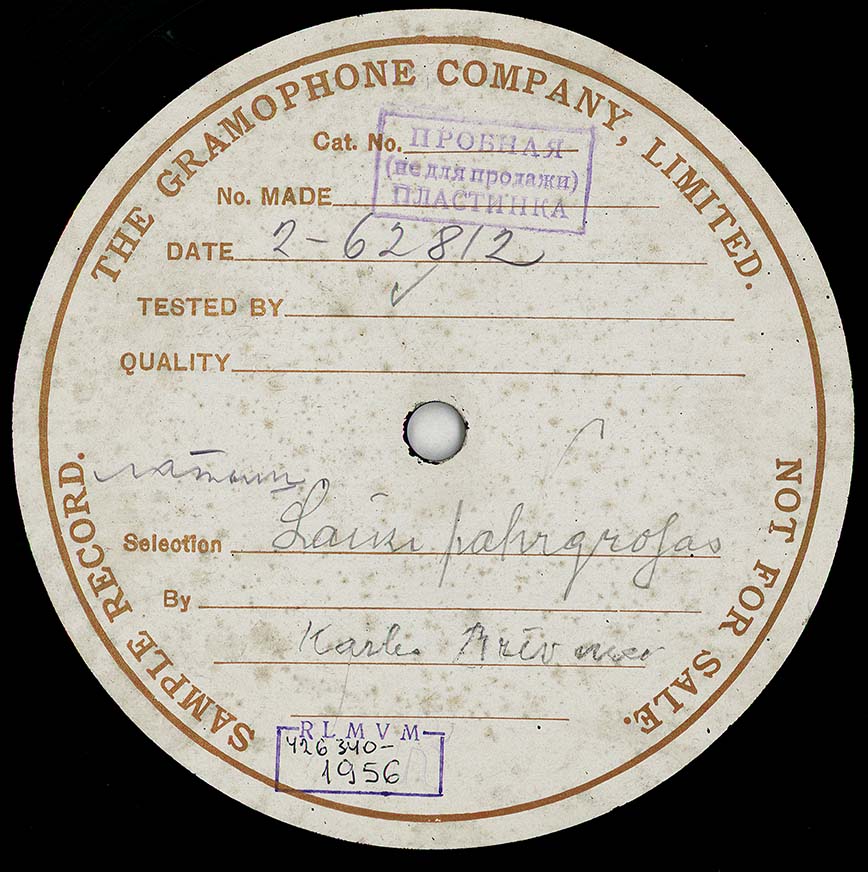 THE GRAMOPHONE COMPANY, LIMITED.
Cat. No.
ПРОБНАЯ
(не для продажи)
ПЛАСТИНКА
No. MADE
DATE 2-62812
TESTED BY
QUALITY
SAMPLE RECORD.
NOT FOR SALE.
латыш
Selection Laiki pahrgrosas
By
Karlis
RLMVM
426340-
1956